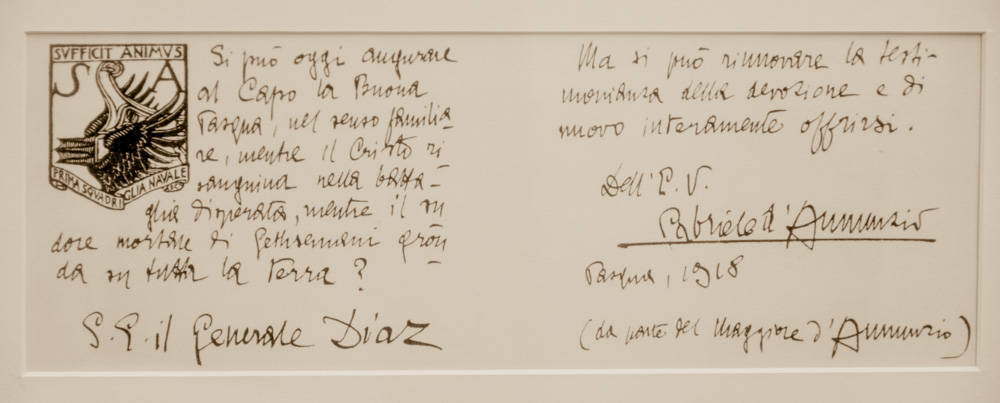 SVFFICIT ANIMVS
S A
PRIMA SQVADRIGLIA NAVALE
Si può oggi augurare
al Capo la Buona
Pasqua, nel senso familia-
re, mentre il Cristo ri
sanguina nella batta-
glia disperata, mentre il su
dore mortale di Gethsemani gron
da su tutta la terra?
S. E. il Generale Diaz
Ma si può rinnovare la testi-
monianza della devozione e di
nuovo interamente offrirsi.
Dell' E. V.
Gabriele d'Annunzio
Pasqua, 1918
(da parte del Maggiore d'Annunzio)